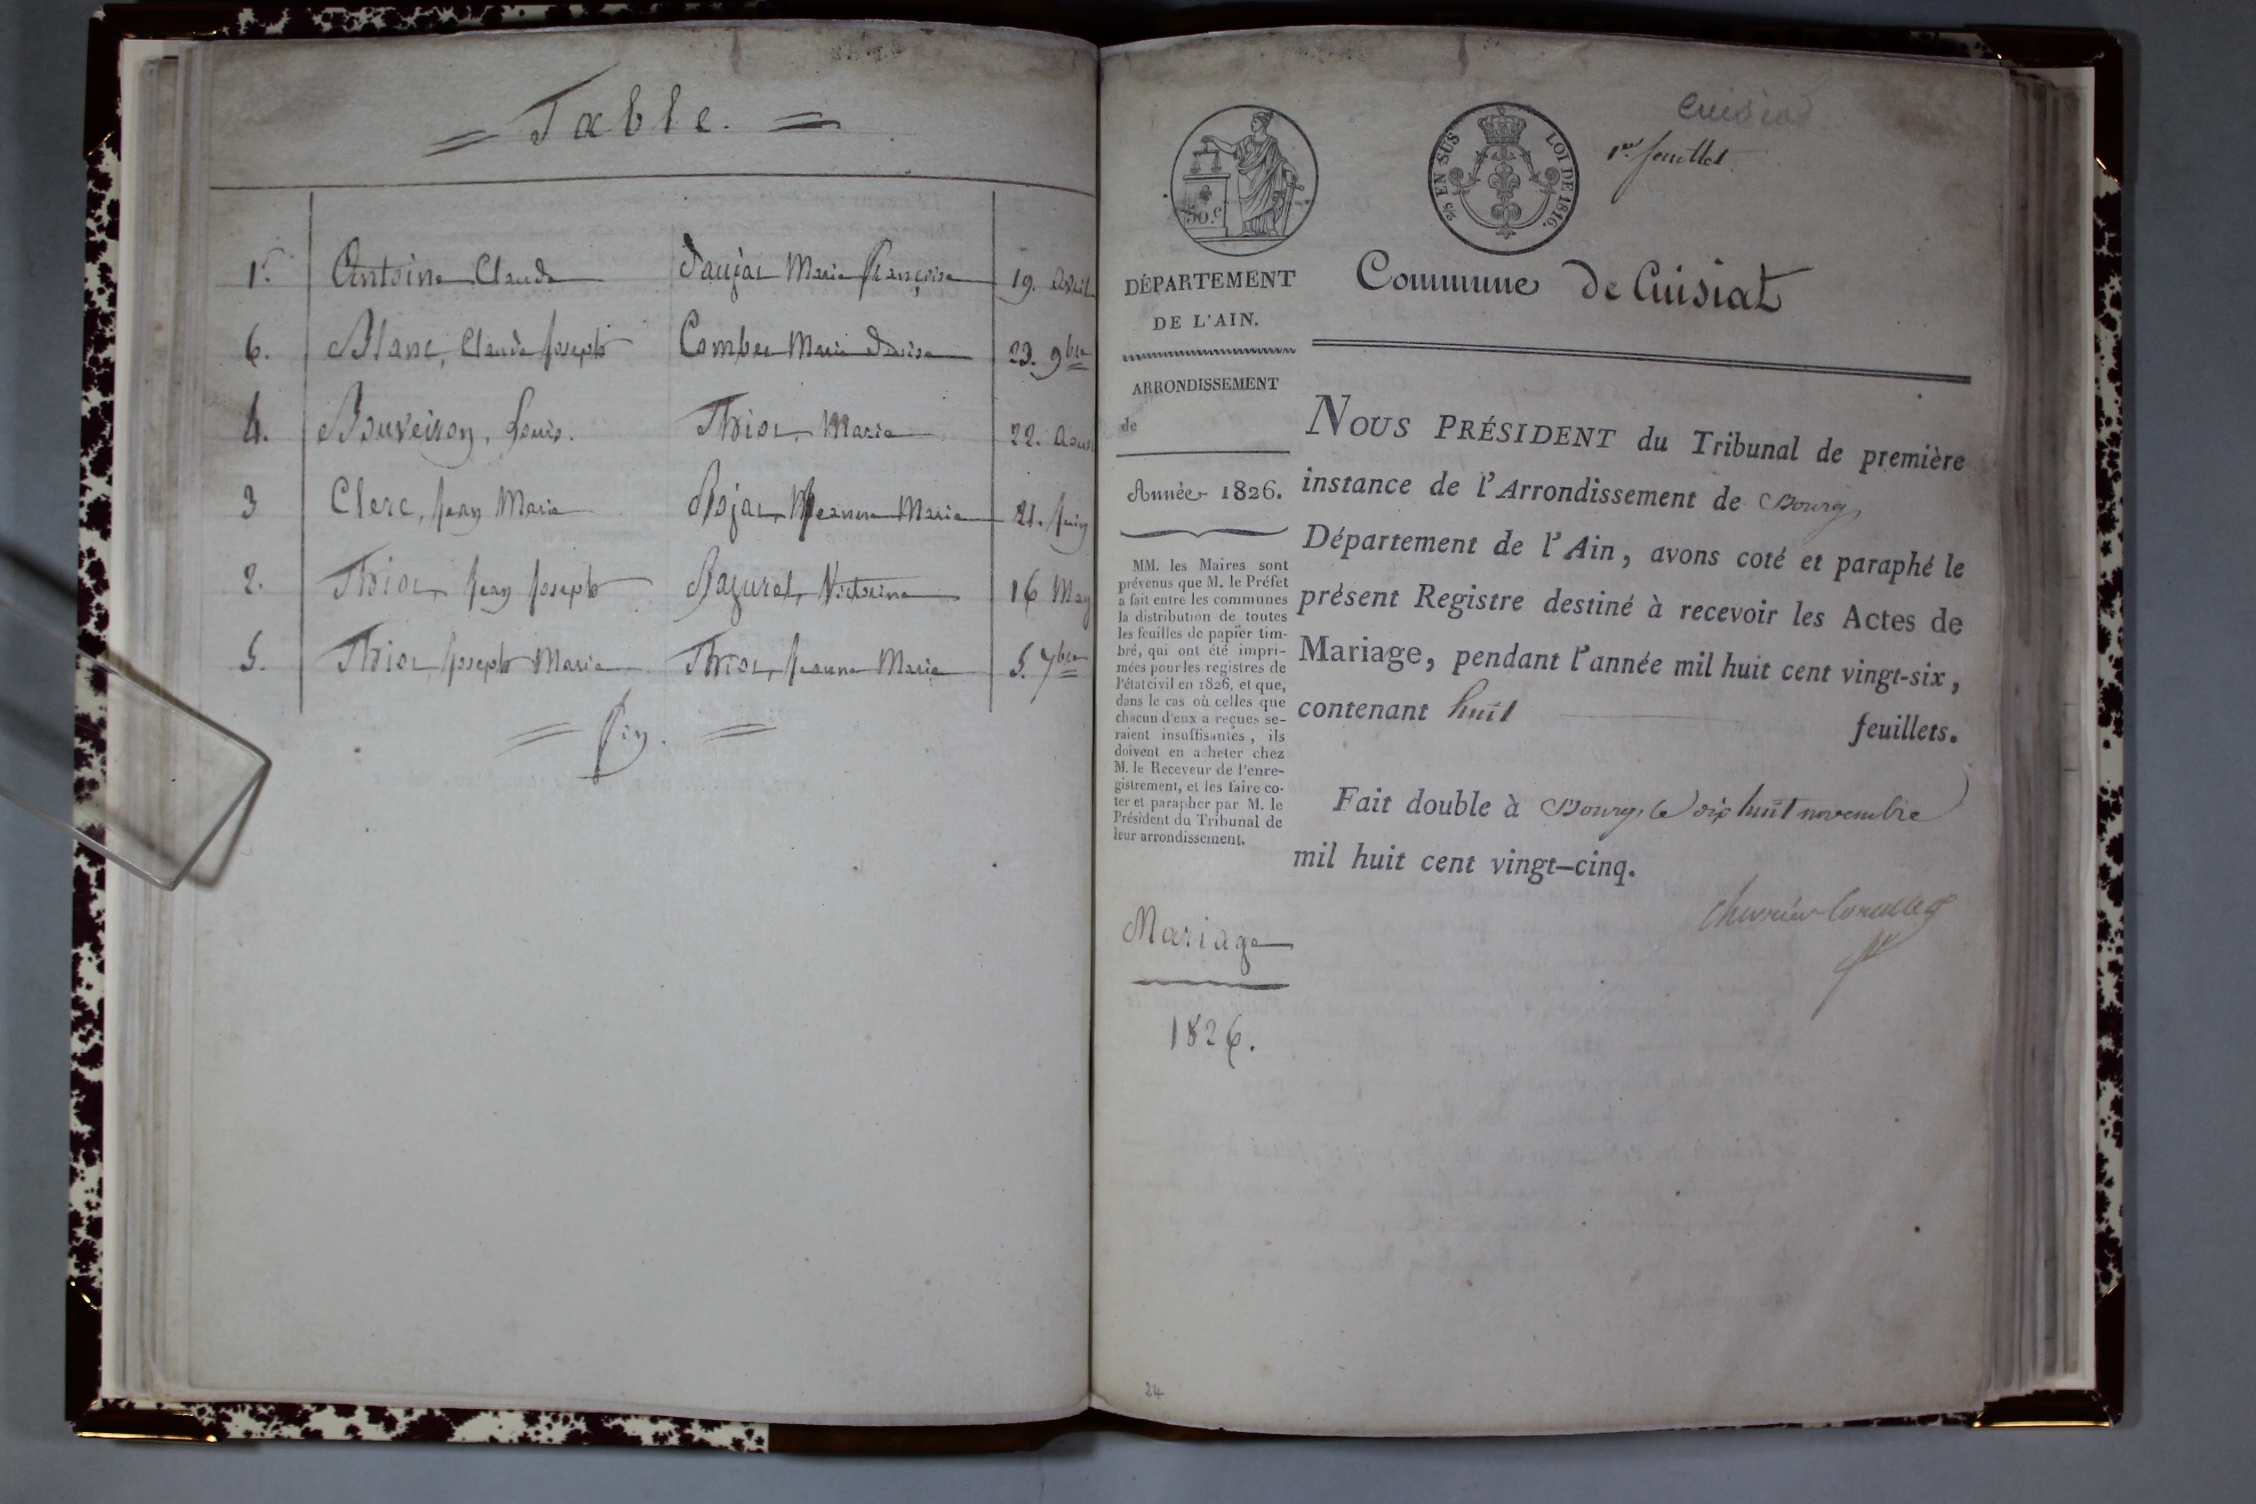 = Table. =
1r. Antoine Claude Daujat Marie Françoise 19. avril
6. Blanc, Claude Joseph Combet Marie Denise 23. 9bre
4. Bouveiron, Louis. Thiot, Marie 22. Aout
3 Clerc, Jean Marie Jeanne Marie 21. Juin
2. Thiot, Jean Joseph Bazuret, Victorine 16 May
5. Thiot, Joseph Marie Thiot, Jeanne Marie 5. 7bre
= Fin. =
Cuisiat
1er feuillet
50.c
2/5 EN SUS LOI DE 1816.
DÉPARTEMENT
DE L'AIN.
ARRONDISSEMENT
de
Année 1826.
MM. les Maires sont
prévenus que M. le Préfet
a fait entre les communes
la distribution de toutes
les feuilles de papier tim-
bré, qui ont été impri-
mées pour les registres de
l'état civil en 1826, et que,
dans le cas où celles que
chacun d'eux a reçues se-
raient insuffisantes, ils
doivent en acheter chez
M. le Receveur de l'enre-
gistrement, et les faire co-
ter et parapher par M. le
Président du Tribunal de
leur arrondissement.
Mariage
1826.
Commune de Cuisiat
NOUS PRÉSIDENT du Tribunal de première
instance de l'Arrondissement de Bourg
Département de l'Ain, avons coté et paraphé le
présent Registre destiné à recevoir les Actes de
Mariage, pendant l'année mil huit cent vingt-six,
contenant huit feuillets.
Fait double à Bourg, le dix huit novembre
mil huit cent vingt-cinq.
24